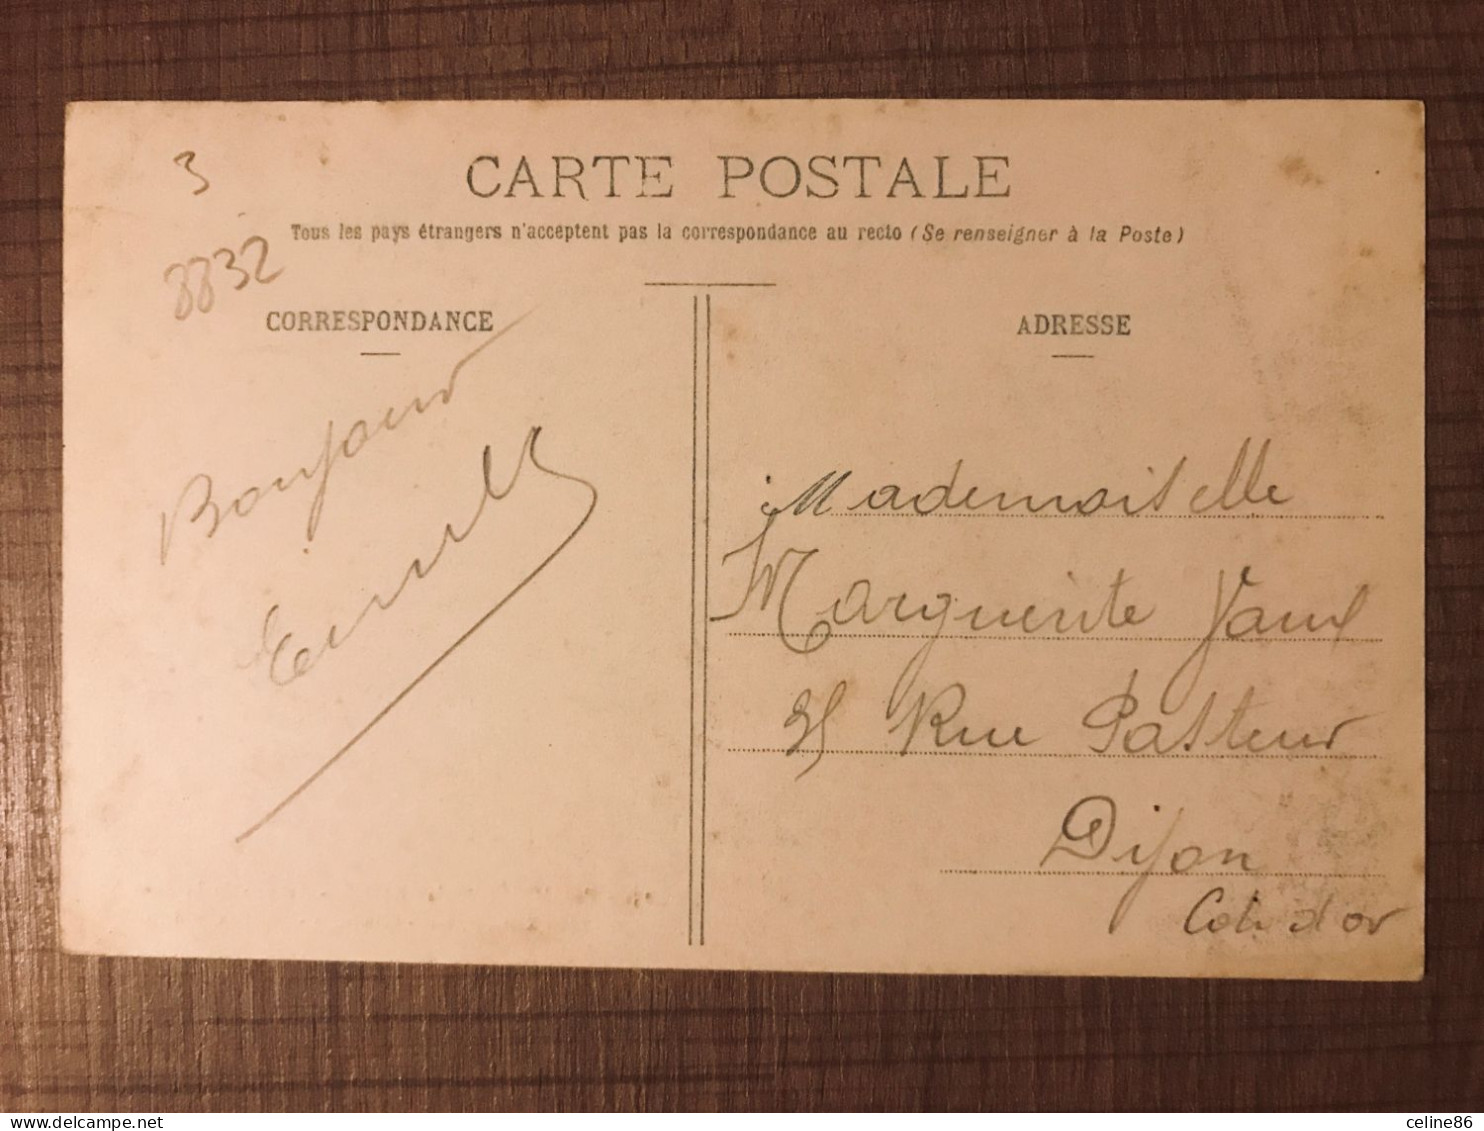 3
8832
CARTE POSTALE
Tous les pays étrangers n'acceptent pas la correspondance au recto (Se renseigner à la Poste)
CORRESPONDANCE
Bonjour
ADRESSE
Mademoiselle
Marguerite
Rue Pasteur
Dijon
Cote d'or
delcampe.net
celine86